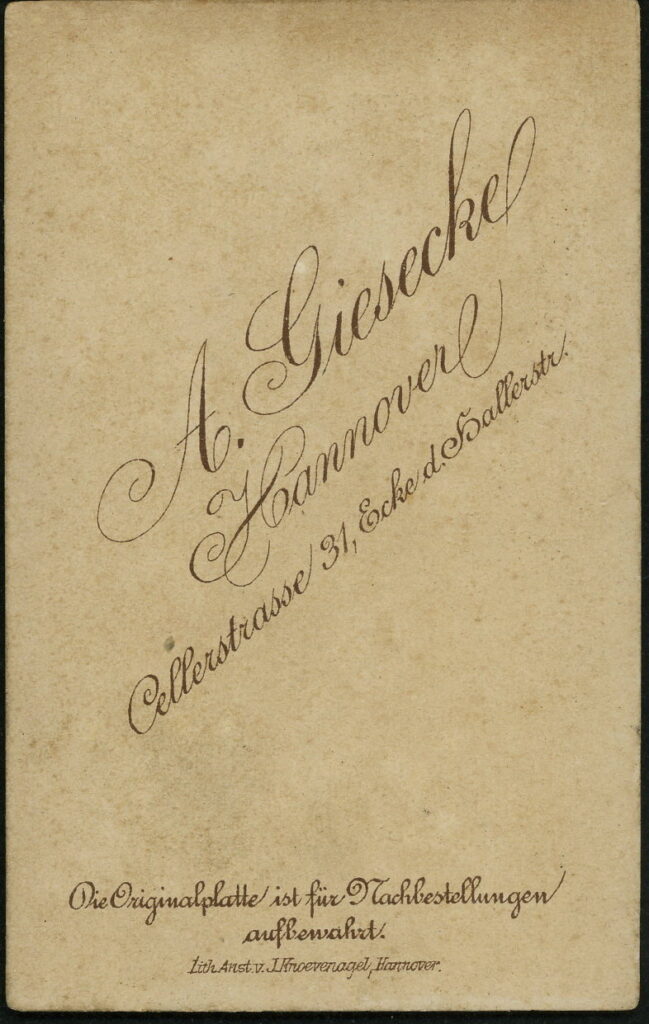 A. Giesecke
Hannover
Cellerstrasse 31, Ecke d. Hallerstr.
Die Originalplatte ist für Nachbestellungen
aufbewahrt.
Lith. Anst. v. J. Knoevenagel, Hannover.